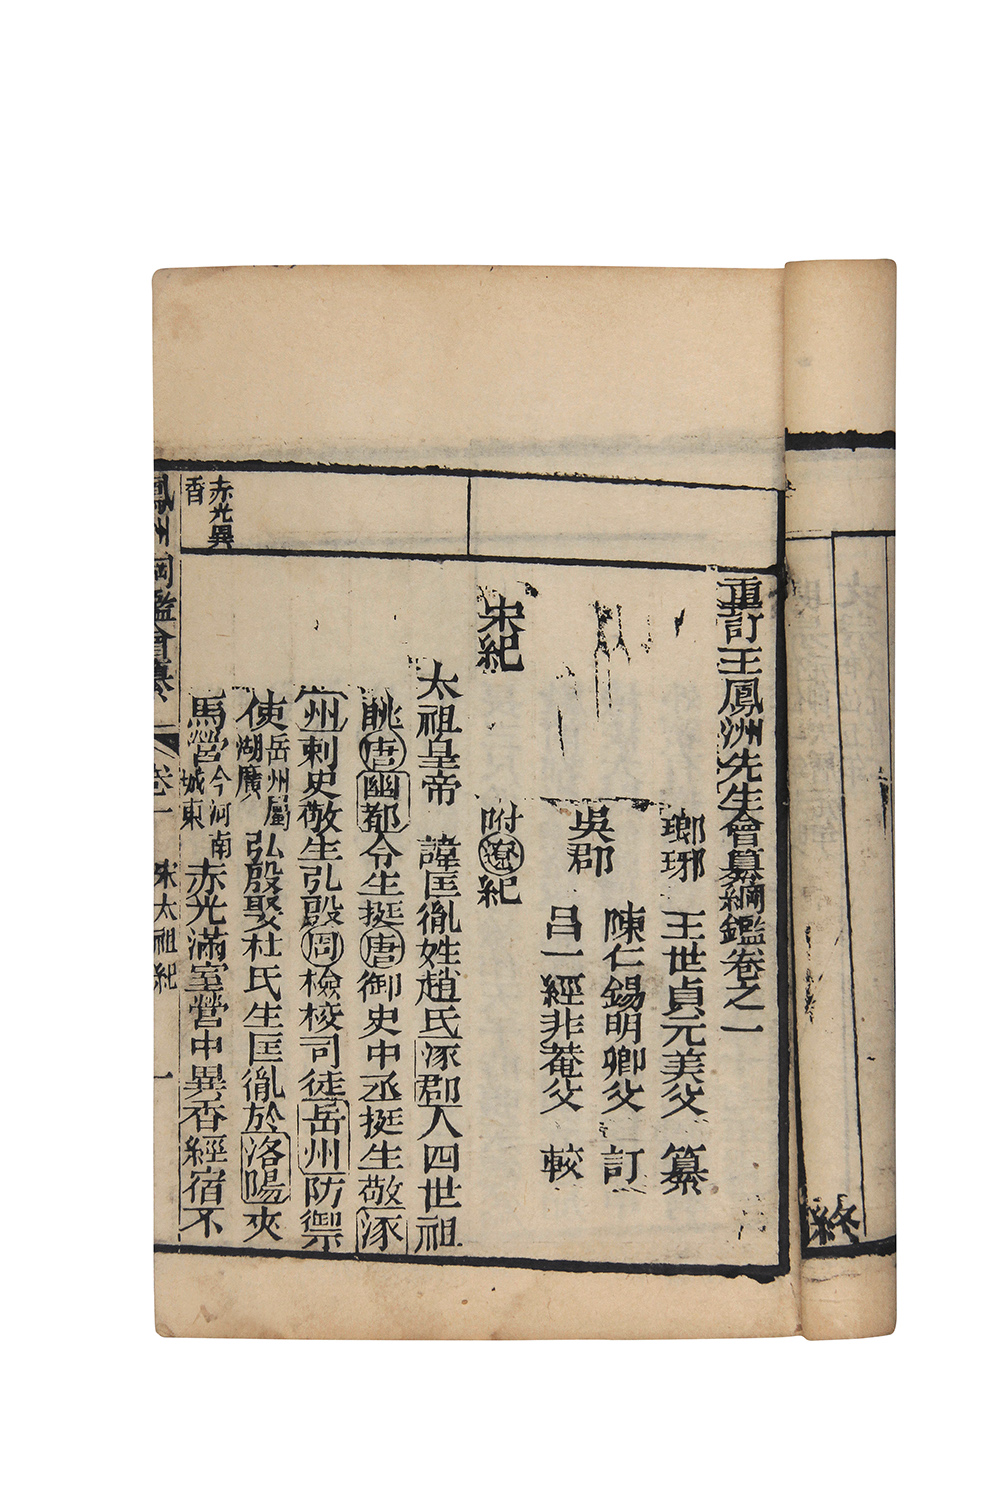 終
重訂王鳳洲先生會纂綱鑑卷之一
瑯琊　王世貞元美父　纂
陳仁錫明卿父　訂
吳郡
呂一經非菴父　較
宋紀　附遼紀
太祖皇帝　諱匡胤姓趙氏涿郡人四世祖
眺唐幽都令生挺唐御史中丞挺生敬涿
州刺史敬生弘殷周檢校司徒岳州防禦
使岳州屬湖廣弘殷娶杜氏生匡胤於洛陽夾
馬營今河南城東赤光滿室營中異香經宿不
赤光異
香
鳳州綱鑑會纂　卷一　宋太祖紀　一